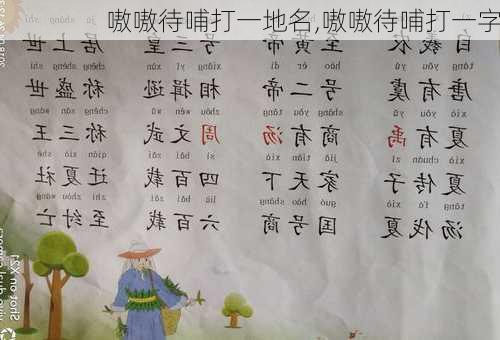 嗷嗷待哺打一地名,嗷嗷待哺打一字
自羲农 至黄帝 号三皇 居上世
táng yǒu yú hào èr dì xiāng yī xùn chēng shèng shì
唐有虞 号二帝 相揖逊 称盛世
xià yǒu yǔ shāng yǒu tāng zhōu wén wǔ chēng sān wáng
夏有禹 商有汤 周文武 称三王
xià chuán zǐ jiā tiān xià sì bǎi zǎi qiān xià shè
夏传子 家天下 四百载 迁夏社
tāng fá xià guó hào shāng liù bǎi zǎi zhì zhòu wáng
汤伐夏 国号商 六百载 至纣亡
Shot on X21